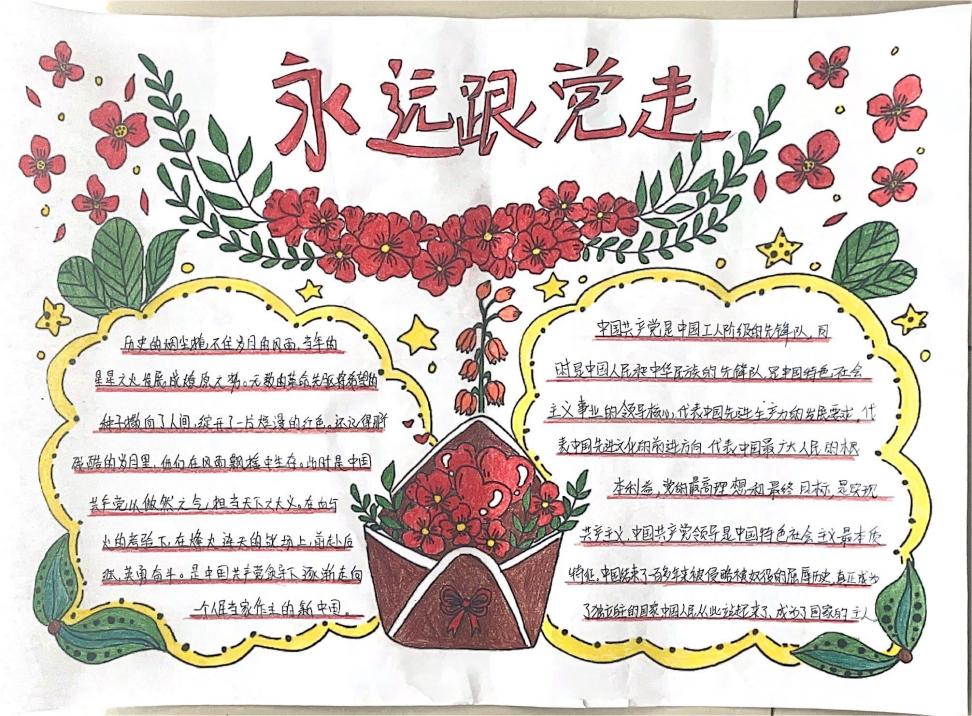 永远跟党走
历史的烟尘掩不住岁月的风雨,当年的
星星之火发展成燎原之势。无数的革命先驱将希望的
种子撒向了人间,绽开了一片烂漫的红色。还记得那
残酷的岁月里,他们在风雨飘摇中生存。此时是中国
共产党从傲然之气,担当天下大义。在血与
火的考验下,在烽火连天的战场上,前赴后
继,英勇奋斗。是中国共产党领导下逐渐走向
一个人民当家作主的新中国。
中国共产党是中国工人阶级的先锋队,同
时是中国人民和中华民族的先锋队,是中国特色社会
主义事业的领导核心,代表中国先进生产力的发展要求,代
表中国先进文化的前进方向,代表中国最广大人民的根
本利益,党的最高理想和最终目标是实现
共产主义,中国共产党领导是中国特色社会主义最本质
特征,中国结束了一百多年来被侵略被奴役的屈辱历史,真正成为
了独立自主的国家中国人民从此站起来了,成为了国家的主人